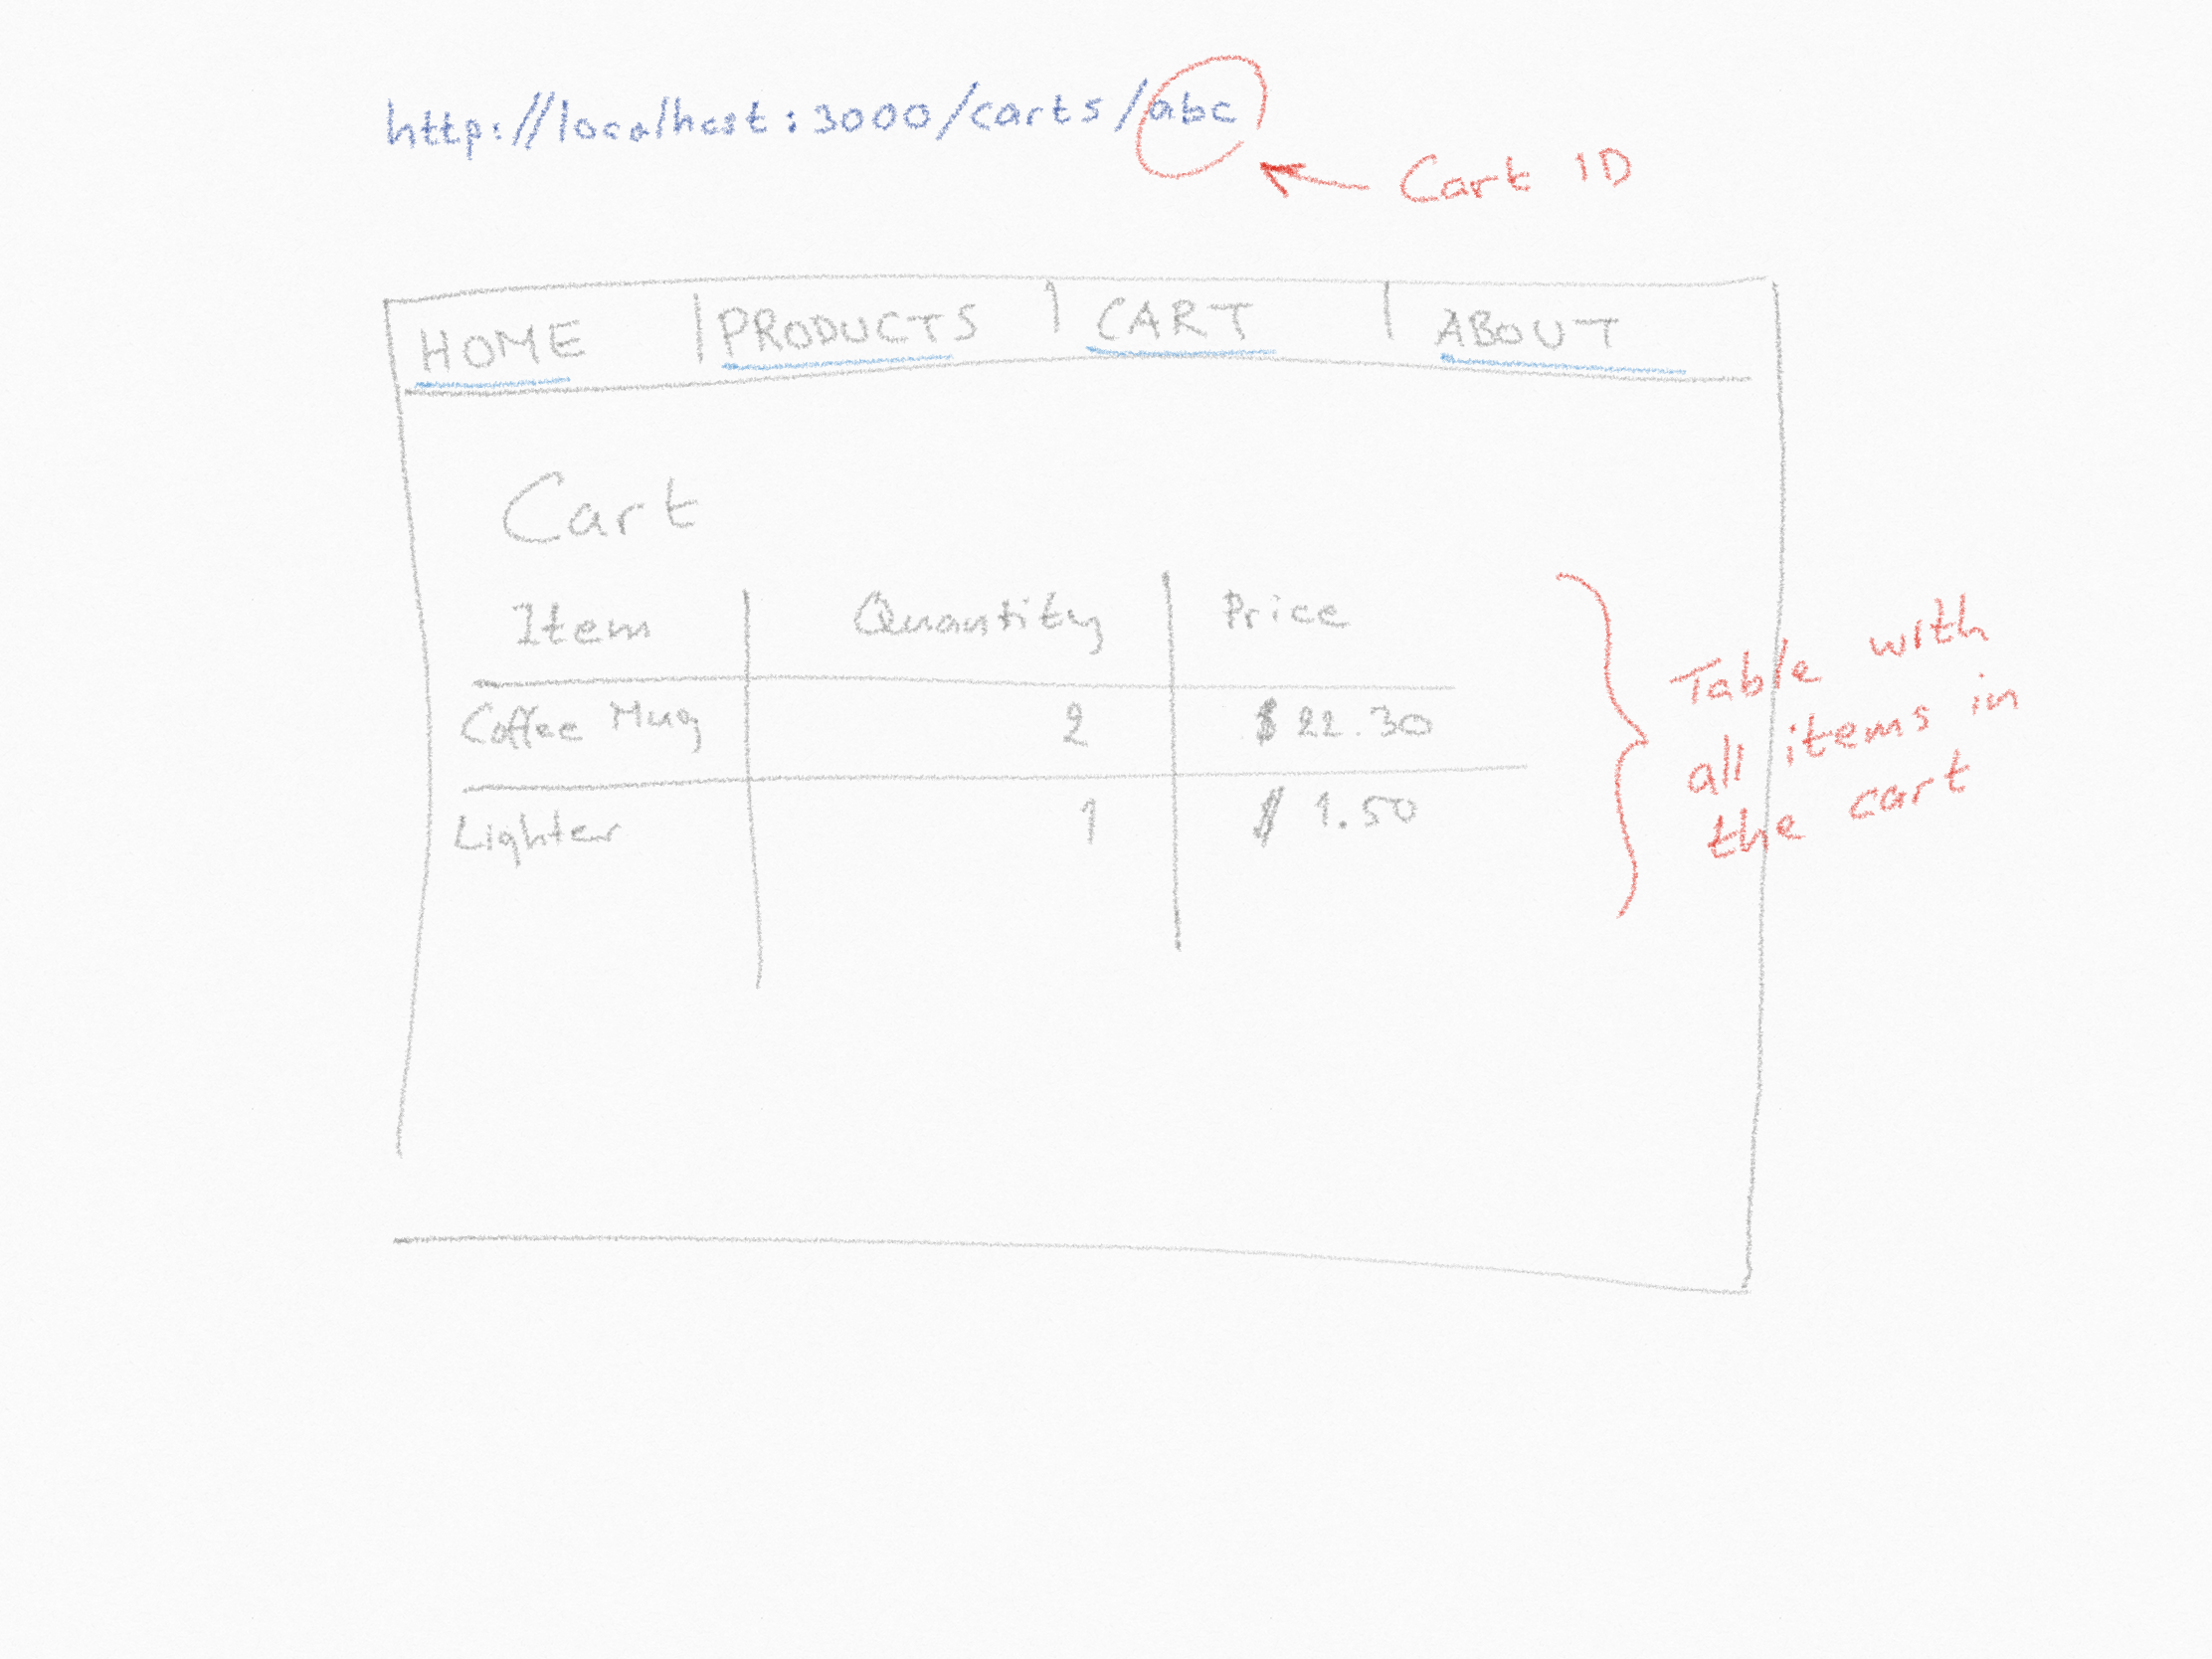 http://localhost:3000/carts/abc
Cart ID
HOME | PRODUCTS | CART | ABOUT
Cart
Item Quantity Price
Coffee Mug 2 $22.30
Lighter 1 $ 1.50
Table with
all items in
the cart